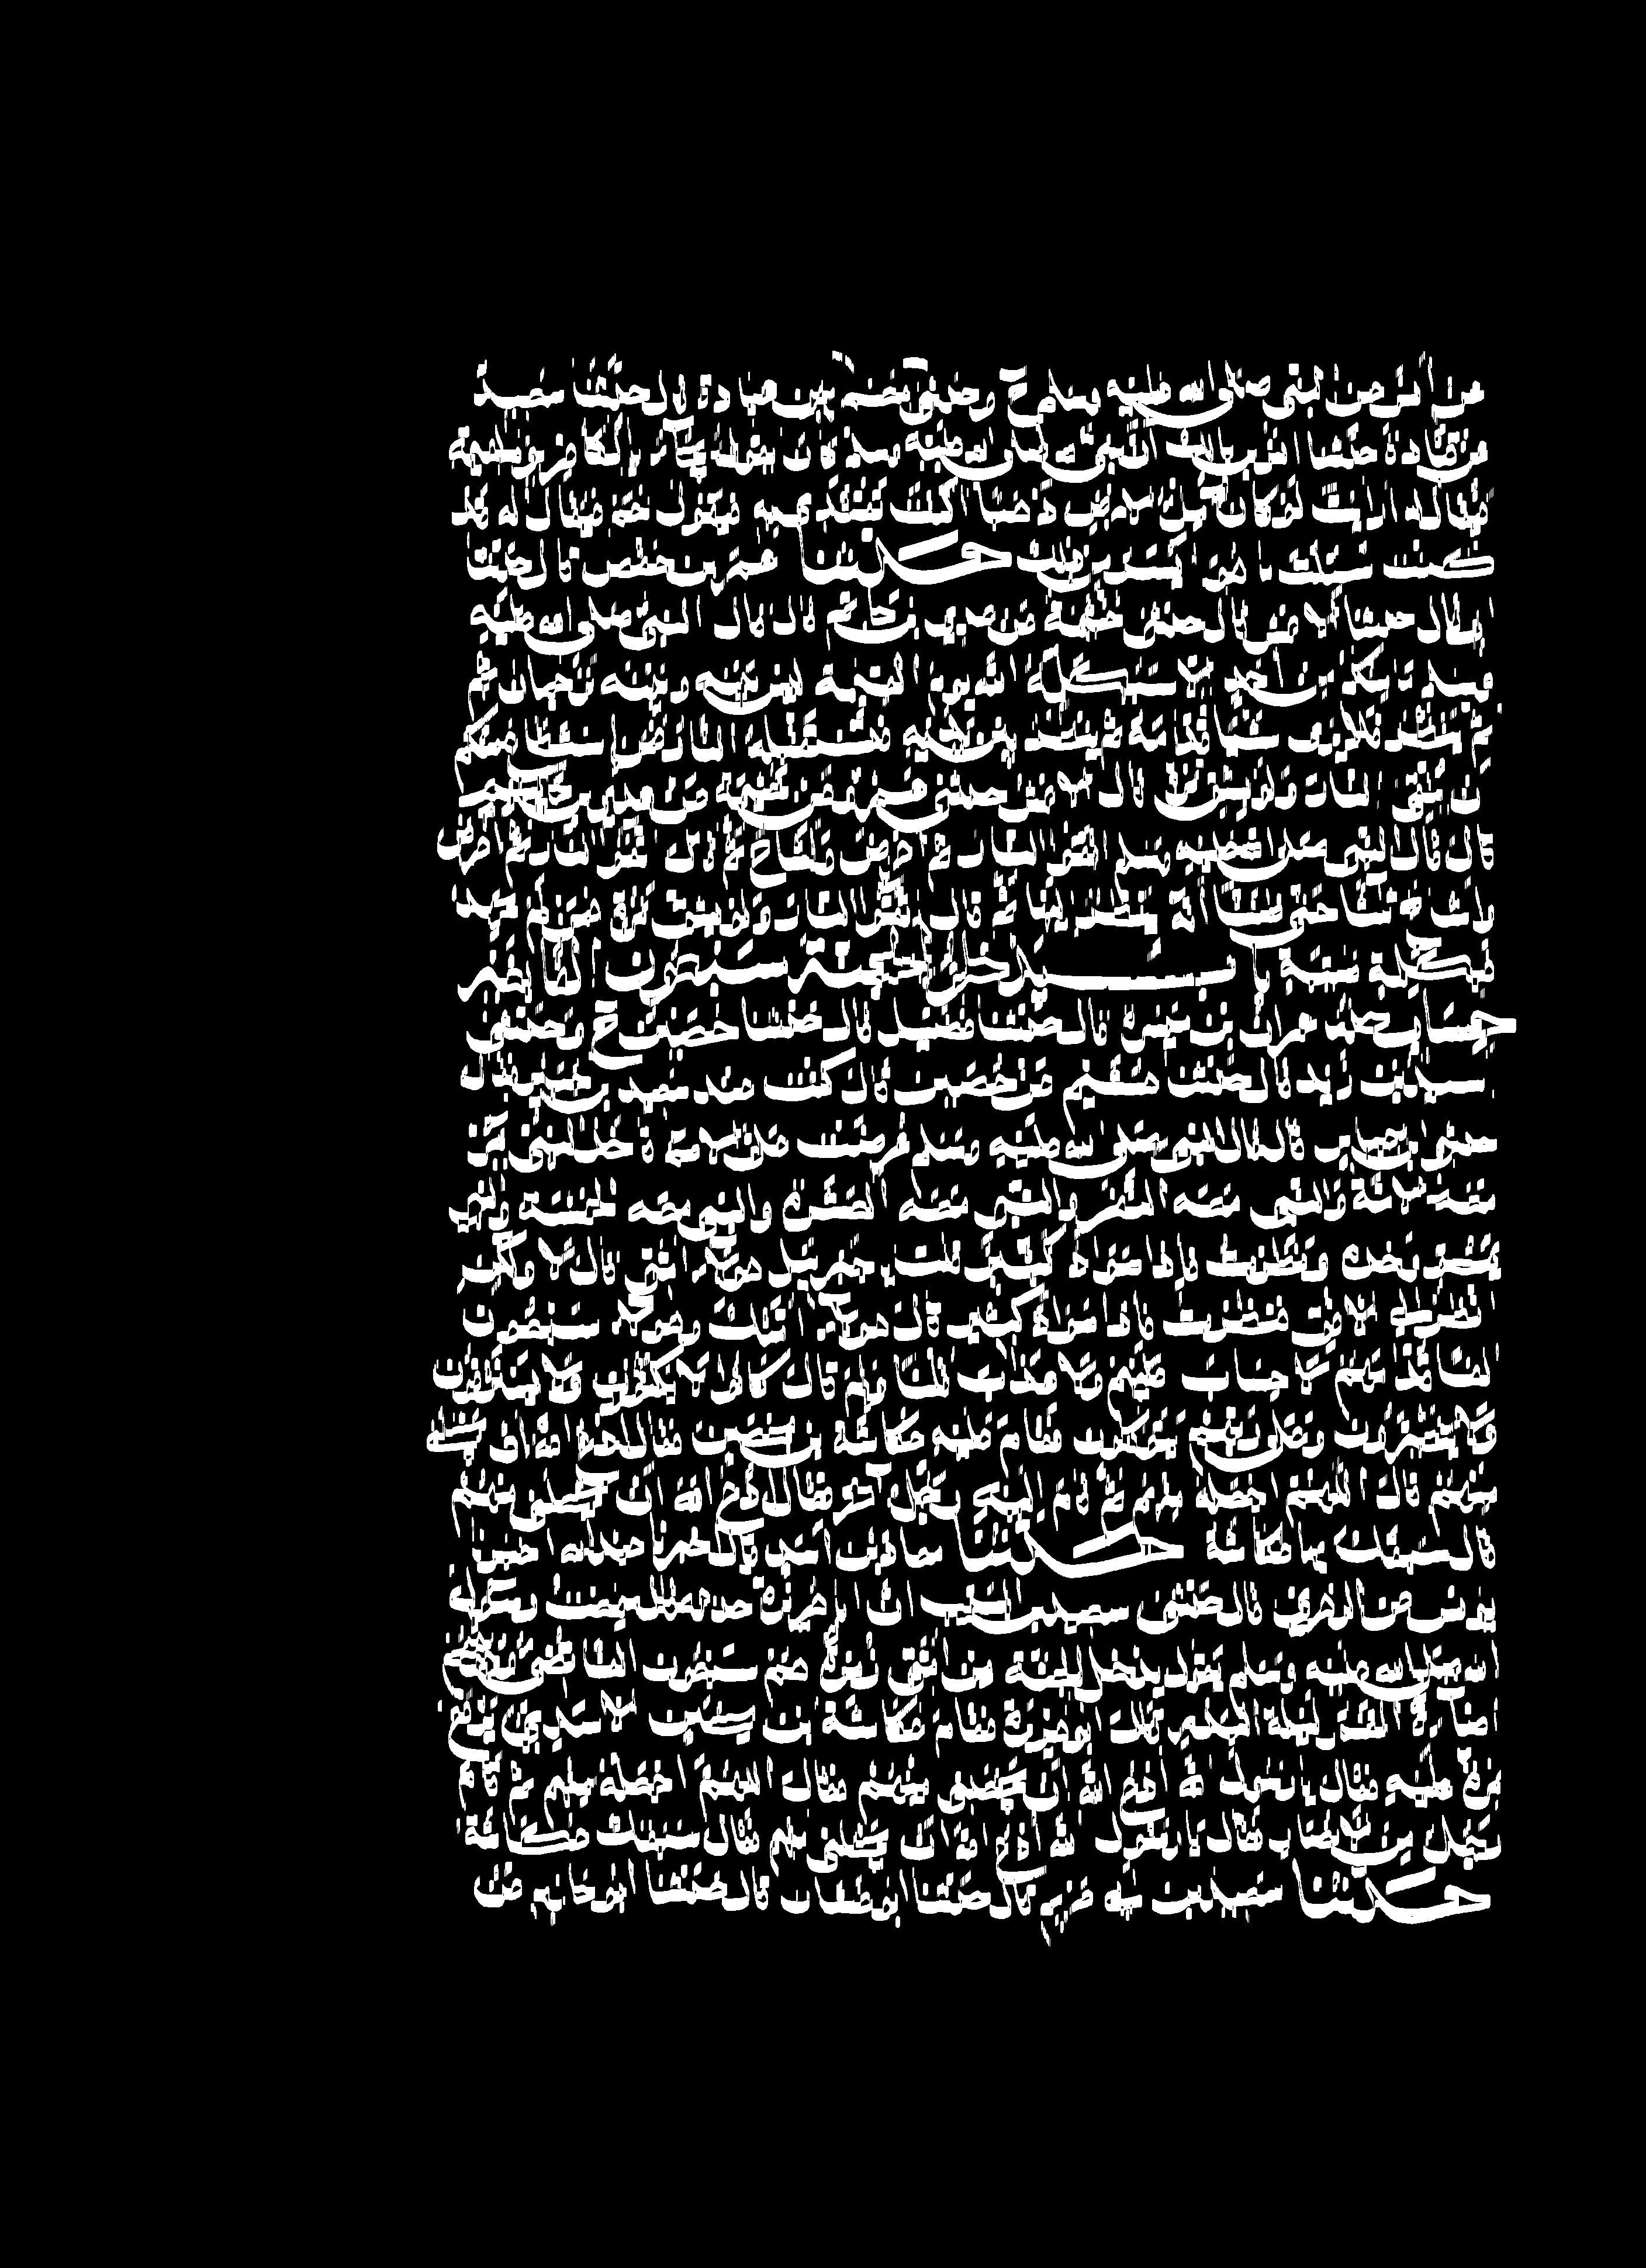 عن أنس عن النبي صلى الله عليه وسلم ح وحدثني محمد بن معمر حدثنا روح بن عبادة قال حدثنا سعيد
عن قتادة حدثنا أنس بن مالك أن النبي صلى الله عليه وسلم كان يقول يجاء بالكافر يوم القيمة
فيقال له أرايت لو كان لك ملء الأرض ذهبا أكنت تفتدي به فيقول نعم فيقال له قد
كنت سئلت ما هو أيسر من ذلك حدثنا عمر بن حفص قال حدثنا
أبي قال حدثنا الأعمش قال حدثني خيثمة عن عدي بن حاتم قال قال النبي صلى الله عليه
وسلم ما منكم من أحد إلا سيكلمه الله يوم القيمة ليس بينه وبينه ترجمان ثم
ينظر فلا يرى شيئا قدامه ثم ينظر بين يديه فتستقبله النار فمن استطاع منكم
أن يتقي النار ولو بشق تمرة قال الأعمش حدثني عمرو عن خيثمة عن عدي بن حاتم
قال قال النبي صلى الله عليه وسلم اتقوا النار ثم أعرض وأشاح ثم قال اتقوا النار ثم أعرض
وأشاح ثلاثا حتى ظننا أنه ينظر إليها ثم قال اتقوا النار ولو بشق تمرة فمن لم يجد
فبكلمة طيبة باب يدخل الجنة سبعون ألفا بغير
حساب حدثنا عمران بن ميسرة قال حدثنا ابن فضيل قال حدثنا حصين ح وحدثني
أسيد بن زيد قال حدثنا هشيم عن حصين قال كنت عند سعيد بن جبير فقال
حدثني ابن عباس قال قال النبي صلى الله عليه وسلم عرضت علي الأمم فأخذ النبي يمر
معه الأمة والنبي معه النفر والنبي معه العشرة والنبي معه الخمسة والنبي
يمر وحده ونظرت فإذا سواد كثير قلت يا جبريل هؤلاء أمتي قال لا ولكن
انظر إلى الأفق فنظرت فإذا سواد كثير قال هؤلاء أمتك وهؤلاء سبعون
ألفا قدامهم لا حساب عليهم ولا عذاب قلت ولم قال كانوا لا يكتوون ولا يسترقون
ولا يتطيرون وعلى ربهم يتوكلون فقام إليه عكاشة بن محصن فقال ادع الله أن يجعلني
منهم قال اللهم اجعله منهم ثم قام إليه رجل آخر فقال ادع الله أن يجعلني منهم
قال سبقك بها عكاشة حدثنا معاذ بن أسد قال أخبرنا عبد الله أخبرنا
يونس عن الزهري قال حدثني سعيد بن المسيب أن أبا هريرة حدثه قال سمعت رسول
الله صلى الله عليه وسلم يقول يدخل الجنة من أمتي زمرة هم سبعون ألفا تضيء وجوههم
إضاءة القمر ليلة البدر قال أبو هريرة فقام عكاشة بن محصن الأسدي يرفع
نمرة عليه فقال يا رسول الله ادع الله أن يجعلني منهم فقال اللهم اجعله منهم ثم قام
رجل من الأنصار فقال يا رسول الله ادع الله أن يجعلني منهم فقال سبقك عكاشة
حدثنا سعيد بن أبي مريم قال حدثنا أبو غسان قال حدثنا أبو حازم عن